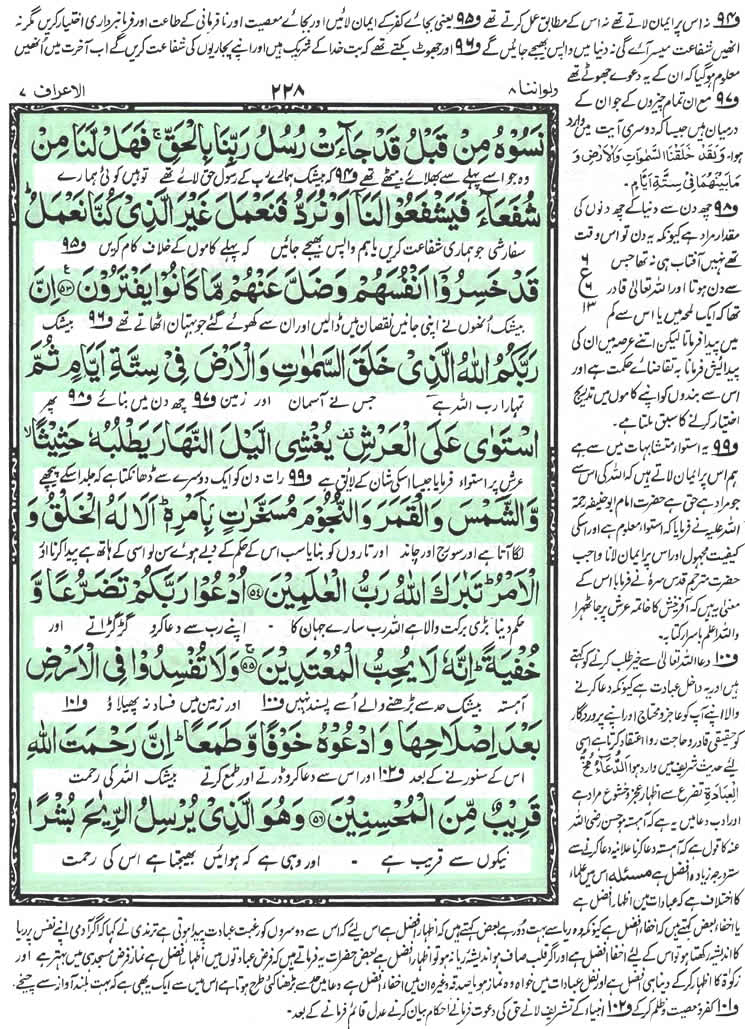 و۹۴ نہ اس پر ایمان لاتے تھے نہ اس کے مطابق عمل کرتے تھے و۹۵ یعنی بجائے کفر کے ایمان لائیں اور بجائے معصیت اور نافرمانی کے طاعت اور فرمانبرداری اختیار کریں مگر نہ
انھیں شفاعت میسر آئے گی نہ دنیا میں واپس بھیجے جائیں گے و۹۶ اور جھوٹ بکتے تھے کہ بت خدا کے شریک ہیں اور اپنے پجاریوں کی شفاعت کریں گے اب آخرت میں انھیں
معلوم ہوگیا کہ ان کے یہ دعوے جھوٹے تھے
ولواننا ۸
۲۲۸
الاعراف ۷
نَسُوۡہُ مِنۡ قَبۡلُ قَدۡ جَآءَتۡ رُسُلُ رَبِّنَا بِالۡحَقِّ ۚ فَہَلۡ لَّنَا مِنۡ
وہ جو اسے پہلے سے بھلائے بیٹھے تھے و۹۴ کہ بیشک ہمارے رب کے رسول حق لائے تھے تو ہیں کوئی ہمارے
شُفَعَآءَ فَیَشۡفَعُوۡا لَنَاۤ اَوۡ نُرَدُّ فَنَعۡمَلَ غَیۡرَ الَّذِیۡ کُنَّا نَعۡمَلُ ؕ
سفارشی جو ہماری شفاعت کریں یا ہم واپس بھیجے جائیں کہ پہلے کاموں کے خلاف کام کریں و۹۵
قَدۡ خَسِرُوۡۤا اَنۡفُسَہُمۡ وَضَلَّ عَنۡہُمۡ مَّا کَانُوۡا یَفۡتَرُوۡنَ ﴿۵۳﴾ اِنَّ
بیشک اُنھوں نے اپنی جانیں نقصان میں ڈالیں اور ان سے کھوئے گئے جو بہتان اٹھاتے تھے و۹۶ بیشک
رَبَّکُمُ اللّٰہُ الَّذِیۡ خَلَقَ السَّمٰوٰتِ وَالۡاَرۡضَ فِیۡ سِتَّۃِ اَیَّامٍ ثُمَّ
تمہارا رب اللہ ہے جس نے آسمان اور زمین و۹۷ چھ دن میں بنائے و۹۸ پھر
اسۡتَوٰی عَلَی الۡعَرۡشِ ۟ یُغۡشِی الَّیۡلَ النَّہَارَ یَطۡلُبُہٗ حَثِیۡثًا ۙ
عرش پر استواء فرمایا جیسا اسکی شان کے لائق ہے و۹۹ رات دن کو ایک دوسرے سے ڈھانکتا ہے کہ جلد اسکے پیچھے
وَّالشَّمۡسَ وَالۡقَمَرَ وَالنُّجُوۡمَ مُسَخَّرٰتٍۭ بِاَمۡرِہٖ ؕ اَلَا لَہُ الۡخَلۡقُ وَ
لگا آتا ہے اور سورج اور چاند اور تاروں کو بنایا سب اس کے حکم کے دبے ہوئے سن لو اسی کے ہاتھ ہے پیدا کرنا اور
الۡاَمۡرُ ؕ تَبٰرَکَ اللّٰہُ رَبُّ الۡعٰلَمِیۡنَ ﴿۵۴﴾ اُدۡعُوۡا رَبَّکُمۡ تَضَرُّعًا وَّ
حکم دینا بڑی برکت والا ہے اللہ رب سارے جہان کا ۔ اپنے رب سے دعا کرو گڑگڑاتے اور
خُفۡیَۃً ؕ اِنَّہٗ لَا یُحِبُّ الۡمُعۡتَدِیۡنَ ﴿۵۵﴾ وَلَا تُفۡسِدُوۡا فِی الۡاَرۡضِ
آہستہ بیشک حد سے بڑھنے والے اُسے پسند نہیں و۱۰۰ اور زمین میں فساد نہ پھیلاؤ و۱۰۱
بَعۡدَ اِصۡلَاحِہَا وَادۡعُوۡہُ خَوۡفًا وَّطَمَعًا ؕ اِنَّ رَحۡمَتَ اللّٰہِ
اس کے سنورنے کے بعد و۱۰۲ اور اس سے دعا کرو ڈرتے اور طمع کرتے بیشک اللہ کی رحمت
قَرِیۡبٌ مِّنَ الۡمُحۡسِنِیۡنَ ﴿۵۶﴾ وَہُوَ الَّذِیۡ یُرۡسِلُ الرِّیٰحَ بُشۡرًۢا
نیکوں سے قریب ہے ۔ اور وہی ہے کہ ہوائیں بھیجتا ہے اس کی رحمت
و۹۷ مع ان تمام چیزوں کے جو ان کے
درمیان ہیں جیسا کہ دوسری آیت میں وارد
ہوا۔ وَلَقَدۡ خَلَقۡنَا السَّمٰوٰتِ وَالۡاَرۡضَ وَ
مَا بَیۡنَہُمَا فِیۡ سِتَّۃِ اَیَّامٍ۔
و۹۸ چھ دن سے دنیا کے چھ دنوں کی
مقدار مراد ہے کیونکہ یہ دن تو اس وقت
تھے نہیں آفتاب ہی نہ تھا جس
سے دن ہوتا اور اللہ تعالٰی قادر
تھا کہ ایک لمحہ میں یا اس سے کم
میں پیدا فرماتا لیکن اتنے عرصہ میں ان کی
پیدائش فرمانا بہ تقاضائے حکمت ہے اور
اس سے بندوں کو اپنے کاموں میں تدریج
اختیار کرنے کا سبق ملتا ہے۔
۶
ع
۶
۱۳
و۹۹ یہ استواء متشابہات میں سے ہے
ہم اس پر ایمان لاتے ہیں کہ اللہ کی اس سے
جو مراد ہے حق ہے حضرت امام ابوحنیفہ رحمۃ
اللہ علیہ نے فرمایا کہ استواء معلوم ہے اور اسکی
کیفیت مجہول اور اس پر ایمان لانا واجب
حضرت مترجم قدس سرہ نے فرمایا اس کے
معنی یہ ہیں کہ آفرینش کا خاتمہ عرش پر جا ٹھہرا
واللہ اعلم باسرار کتابہ۔
و۱۰۰ دعا اللہ تعالٰی سے خیر طلب کرنے کو کہتے
ہیں اور یہ داخل عبادت ہے کیونکہ دعا کرنے
والا اپنے آپ کو عاجز و محتاج اور اپنے پروردگار
کو حقیقی قادر و حاجت روا اعتقاد کرتا ہے اسی
لئے حدیث شریف میں وارد ہوا اَلدُّعَآءُ مُخُّ
الۡعِبَادَۃِ تضرع سے اظہار عجز و خشوع مراد ہے
اور ادب دعا میں یہ ہے کہ آہستہ ہو حسن رضی اللہ
عنہ کا قول ہے کہ آہستہ دعا کرنا علانیہ دعا کرنے سے
ستر درجہ زیادہ افضل ہے مسئلہ اس میں علماء
کا اختلاف ہے کہ عبادات میں اظہار افضل ہے
یا اخفا بعض کہتے ہیں کہ اخفا افضل ہے کیونکہ وہ ریا سے بہت دُور ہے بعض کہتے ہیں کہ اظہار افضل ہے اس لیے کہ اس سے دوسروں کو رغبت عبادت پیدا ہوتی ہے ترمذی نے کہا کہ اگر آدمی اپنے نفس پر ریا
کا اندیشہ رکھتا ہو تو اس کے لئے اخفا افضل ہے اور اگر قلب صاف ہو اندیشۂ ریا نہ ہو تو اظہار افضل ہے بعض حضرات یہ فرماتے ہیں کہ فرض عبادتوں میں اظہار افضل ہے نماز فرض مسجد ہی میں بہتر ہے اور
زکوٰۃ کا اظہار کر کے دینا ہی افضل ہے اور نفل عبادات میں خواہ وہ نماز ہو یا صدقہ وغیرہ ان میں اخفاء افضل ہے دعا میں حد سے بڑھنا کئی طرح ہوتا ہے اس میں سے ایک یہ بھی ہے کہ بہت بلند آواز سے چیخے۔
و۱۰۱ کفر و معصیت و ظلم کر کے و۱۰۲ انبیاء کے تشریف لانے حق کی دعوت فرمانے احکام بیان کرنے عدل قائم فرمانے کے بعد۔